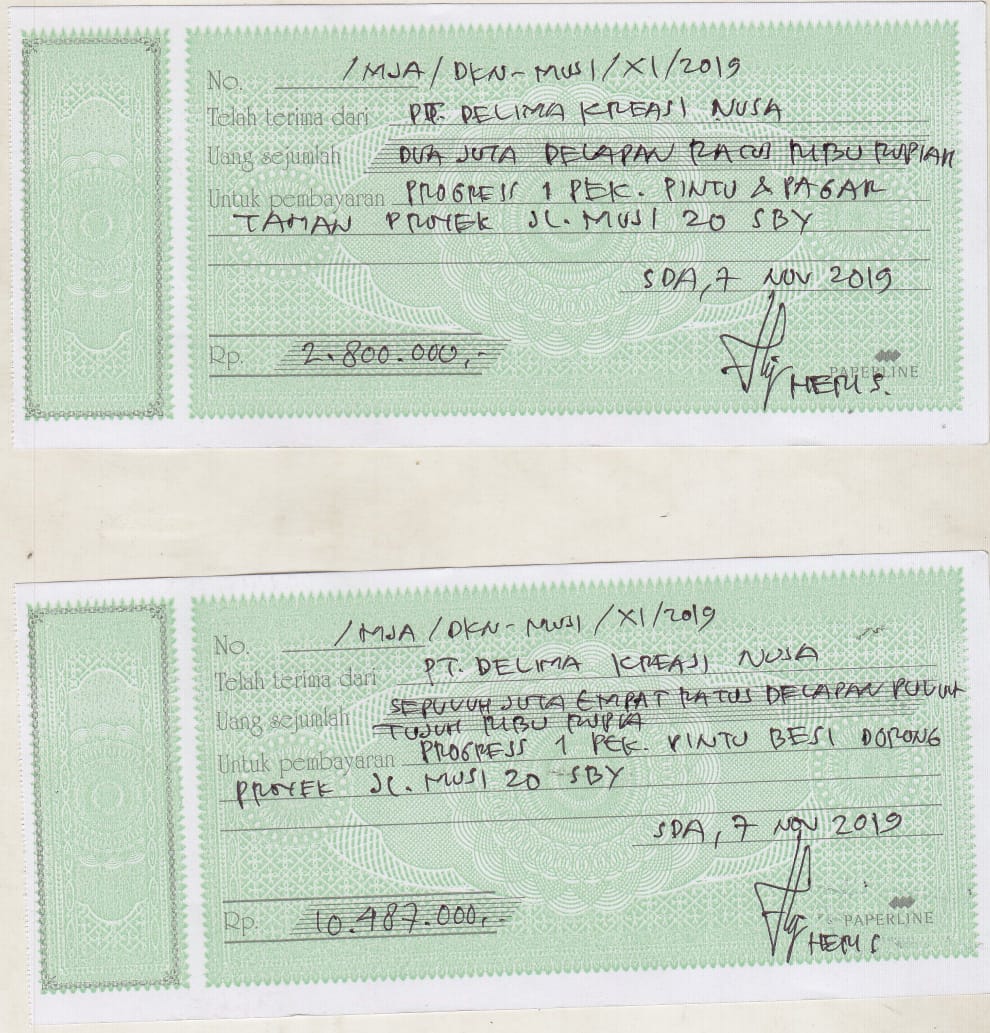 No. /MJA/DKN-MUSI/XI/2019
Telah terima dari PT. DELIMA KREASI NUSA
Uang sejumlah DUA JUTA DELAPAN RATUS RIBU RUPIAH
Untuk pembayaran PROGRESS 1 PEK. PINTU & PAGAR
TAMAN PROYEK JL. MUSI 20 SBY
SDA, 7 NOV 2019
Rp. 2.800.000,-
PAPERLINE
HERI S.
No. /MJA/DKN-MUSI/XI/2019
Telah terima dari PT. DELIMA KREASI NUSA
Uang sejumlah SEPULUH JUTA EMPAT RATUS DELAPAN PULUH
TUJUH RIBU RUPIA
Untuk pembayaran PROGRESS 1 PEK. PINTU BESI DORONG
PROYEK JL. MUSI 20 SBY
SDA, 7 NOV 2019
Rp. 10.487.000,-
PAPERLINE
HERI S